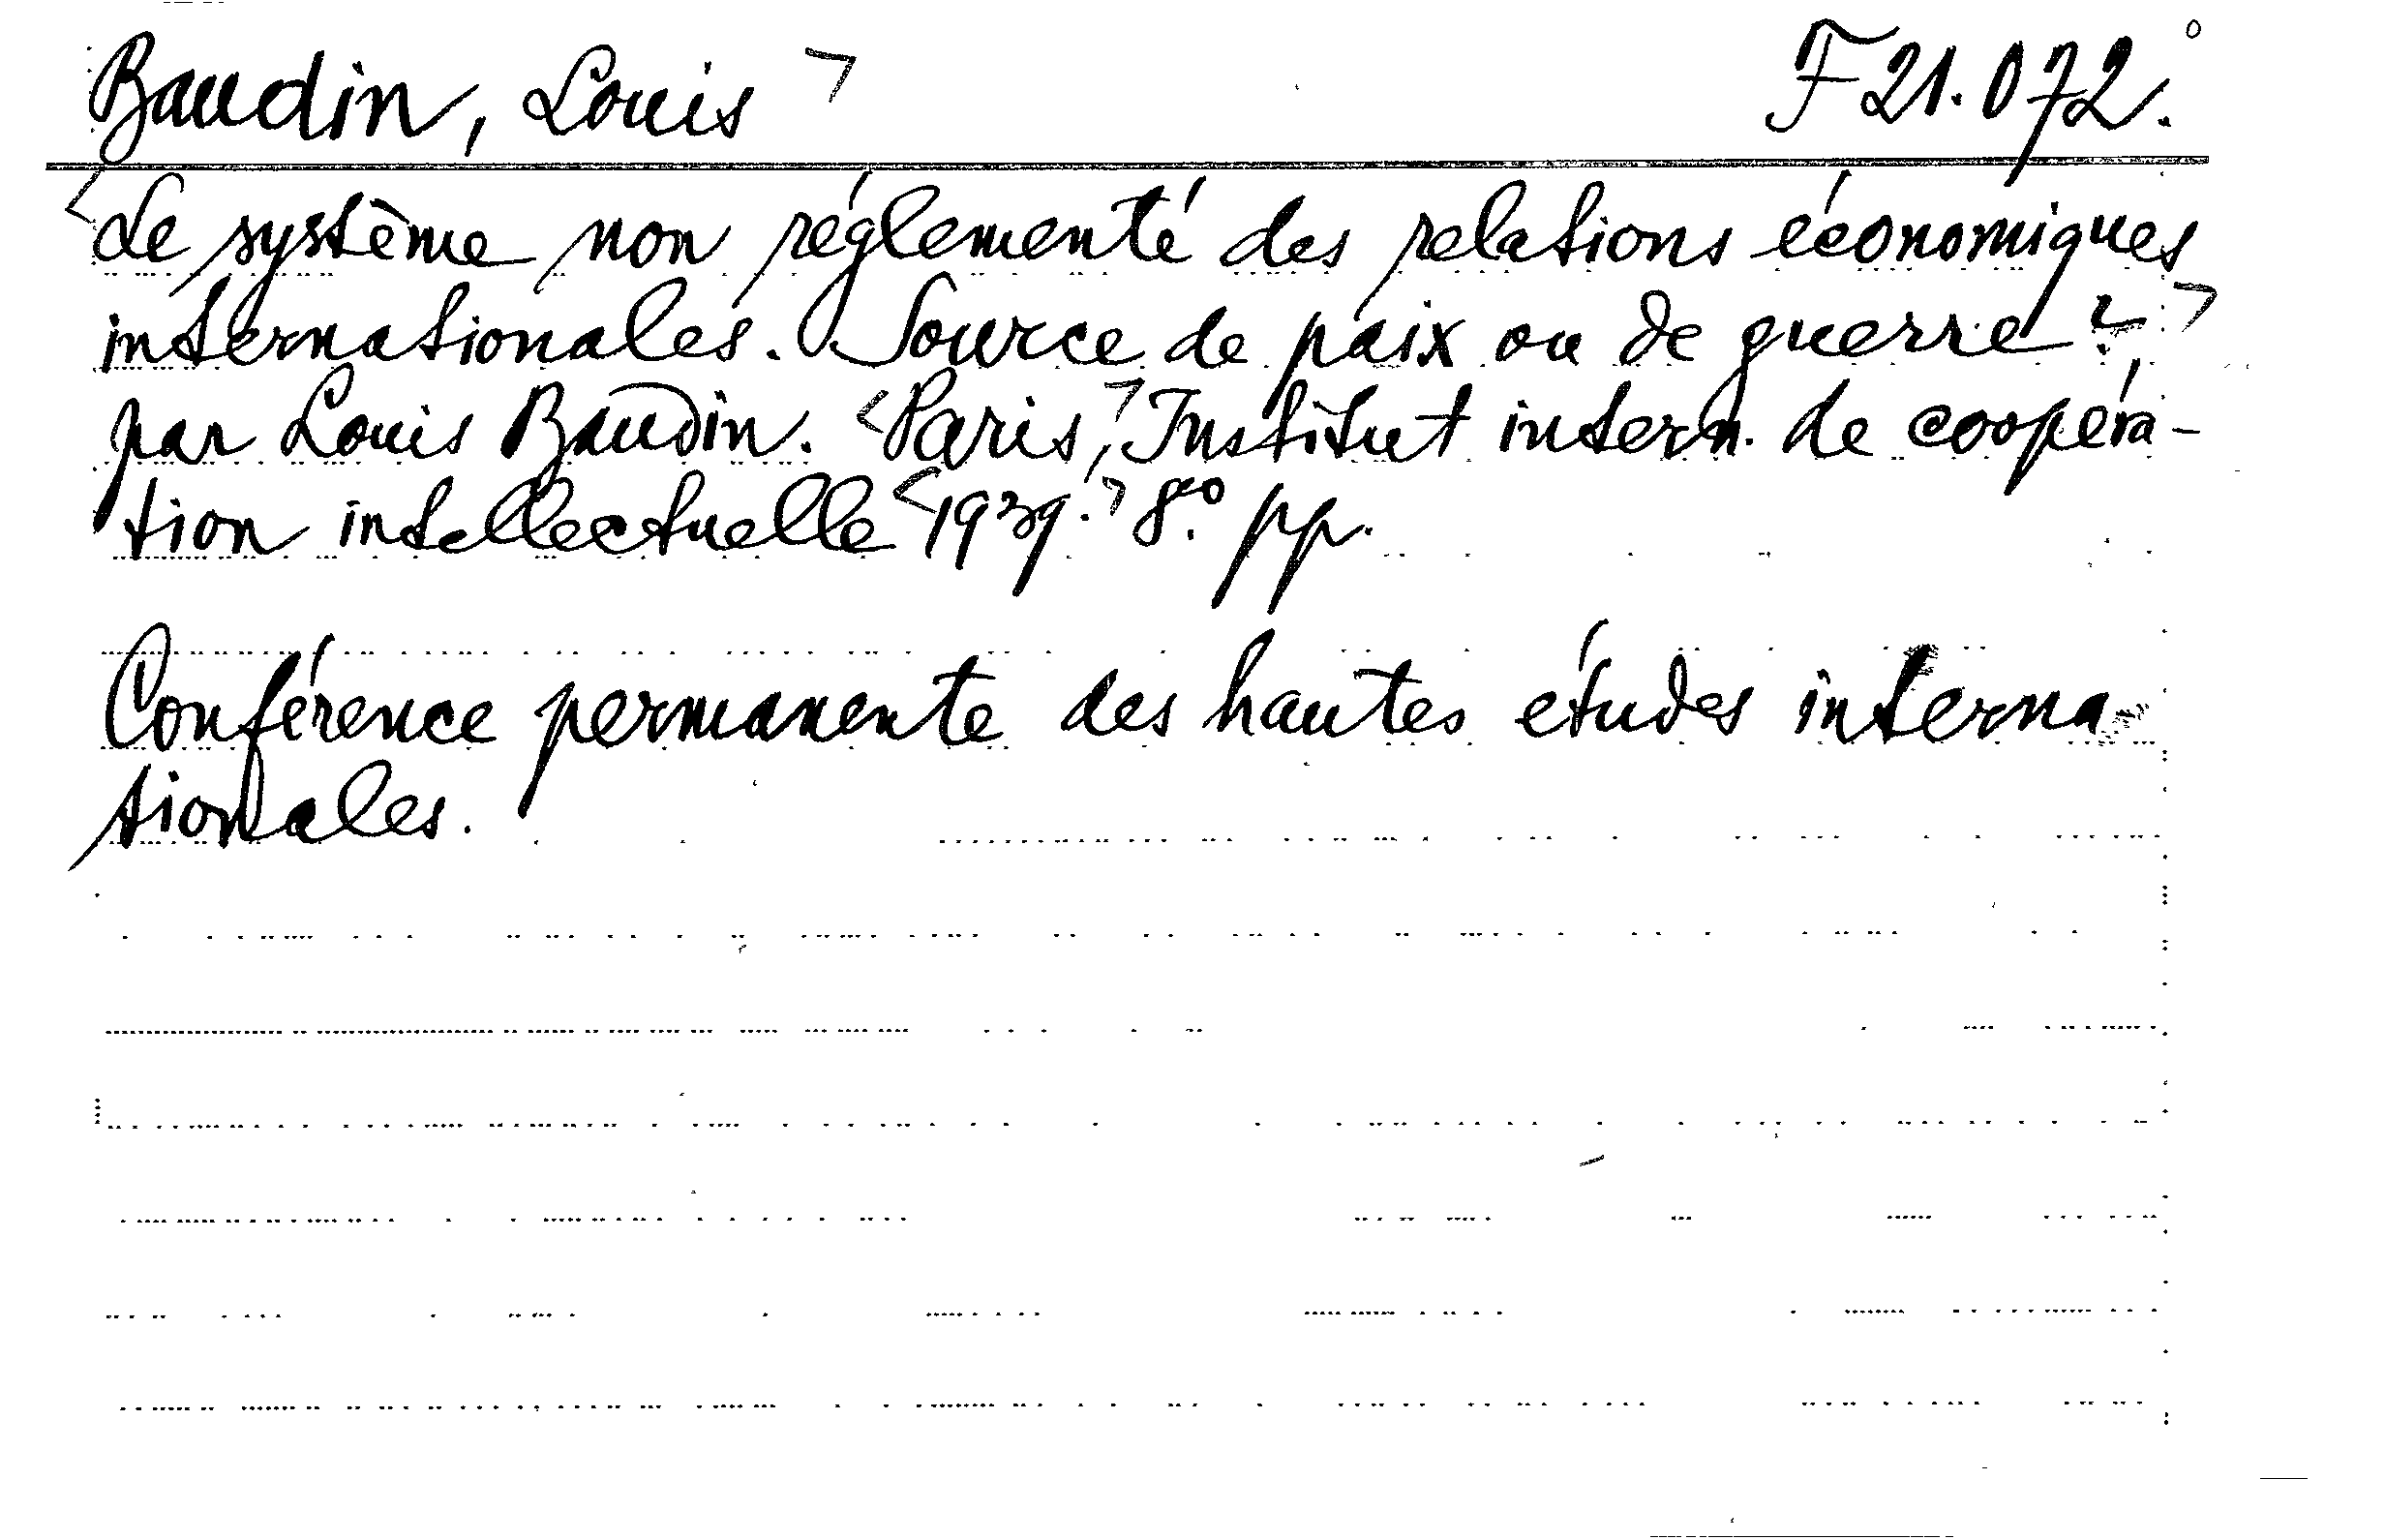 Baudin, Louis F 21.072.
Le système non réglementé des relations économiques
internationales. Source de paix ou de guerre?
par Louis Baudin. Paris, Institut intern. de coopéra-
tion intellectuelle 1939. 8.° pp.
Conférence permanente des hautes études interna-
tionales.